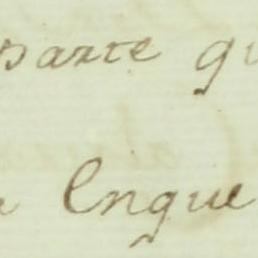 parte qu
Engue